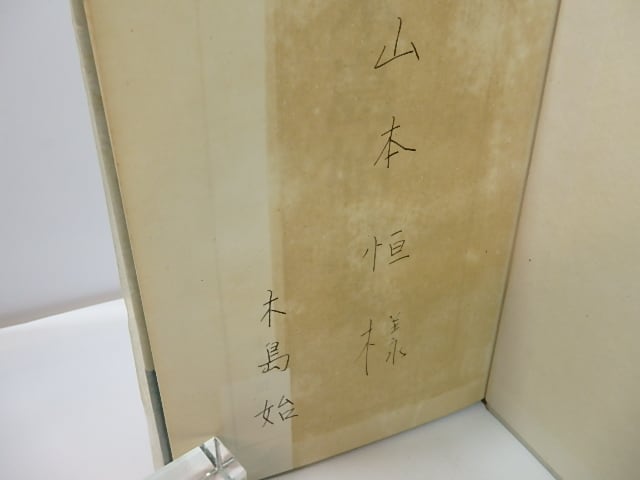 山本恒様
木島始